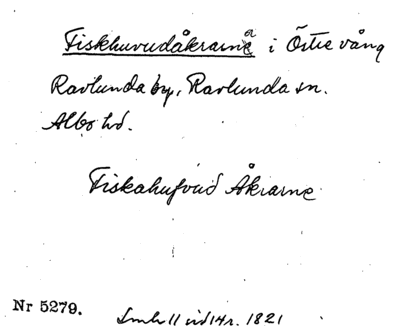 Fiskhuvudåkrarna i Östre vång
Ravlunda by, Ravlunda sn.
Albo hd.
Fiskahufvud Åkrarne
Nr 5279.
1821